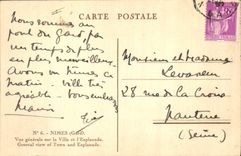 CARTE POSTALE
Nous sommes au
pont du Gard, par
un temps de plus
en plus merveilleux
Avons vu Nimes ce
matin. Ville très
agréable.
Monsieur et Madame
Levavasseur
28 rue de la Croix
Nanterre
(Seine)
N° 6. - NIMES (Gard)
Vue générale sur la Ville et l'Esplanade.
General view of Town and Esplanade.